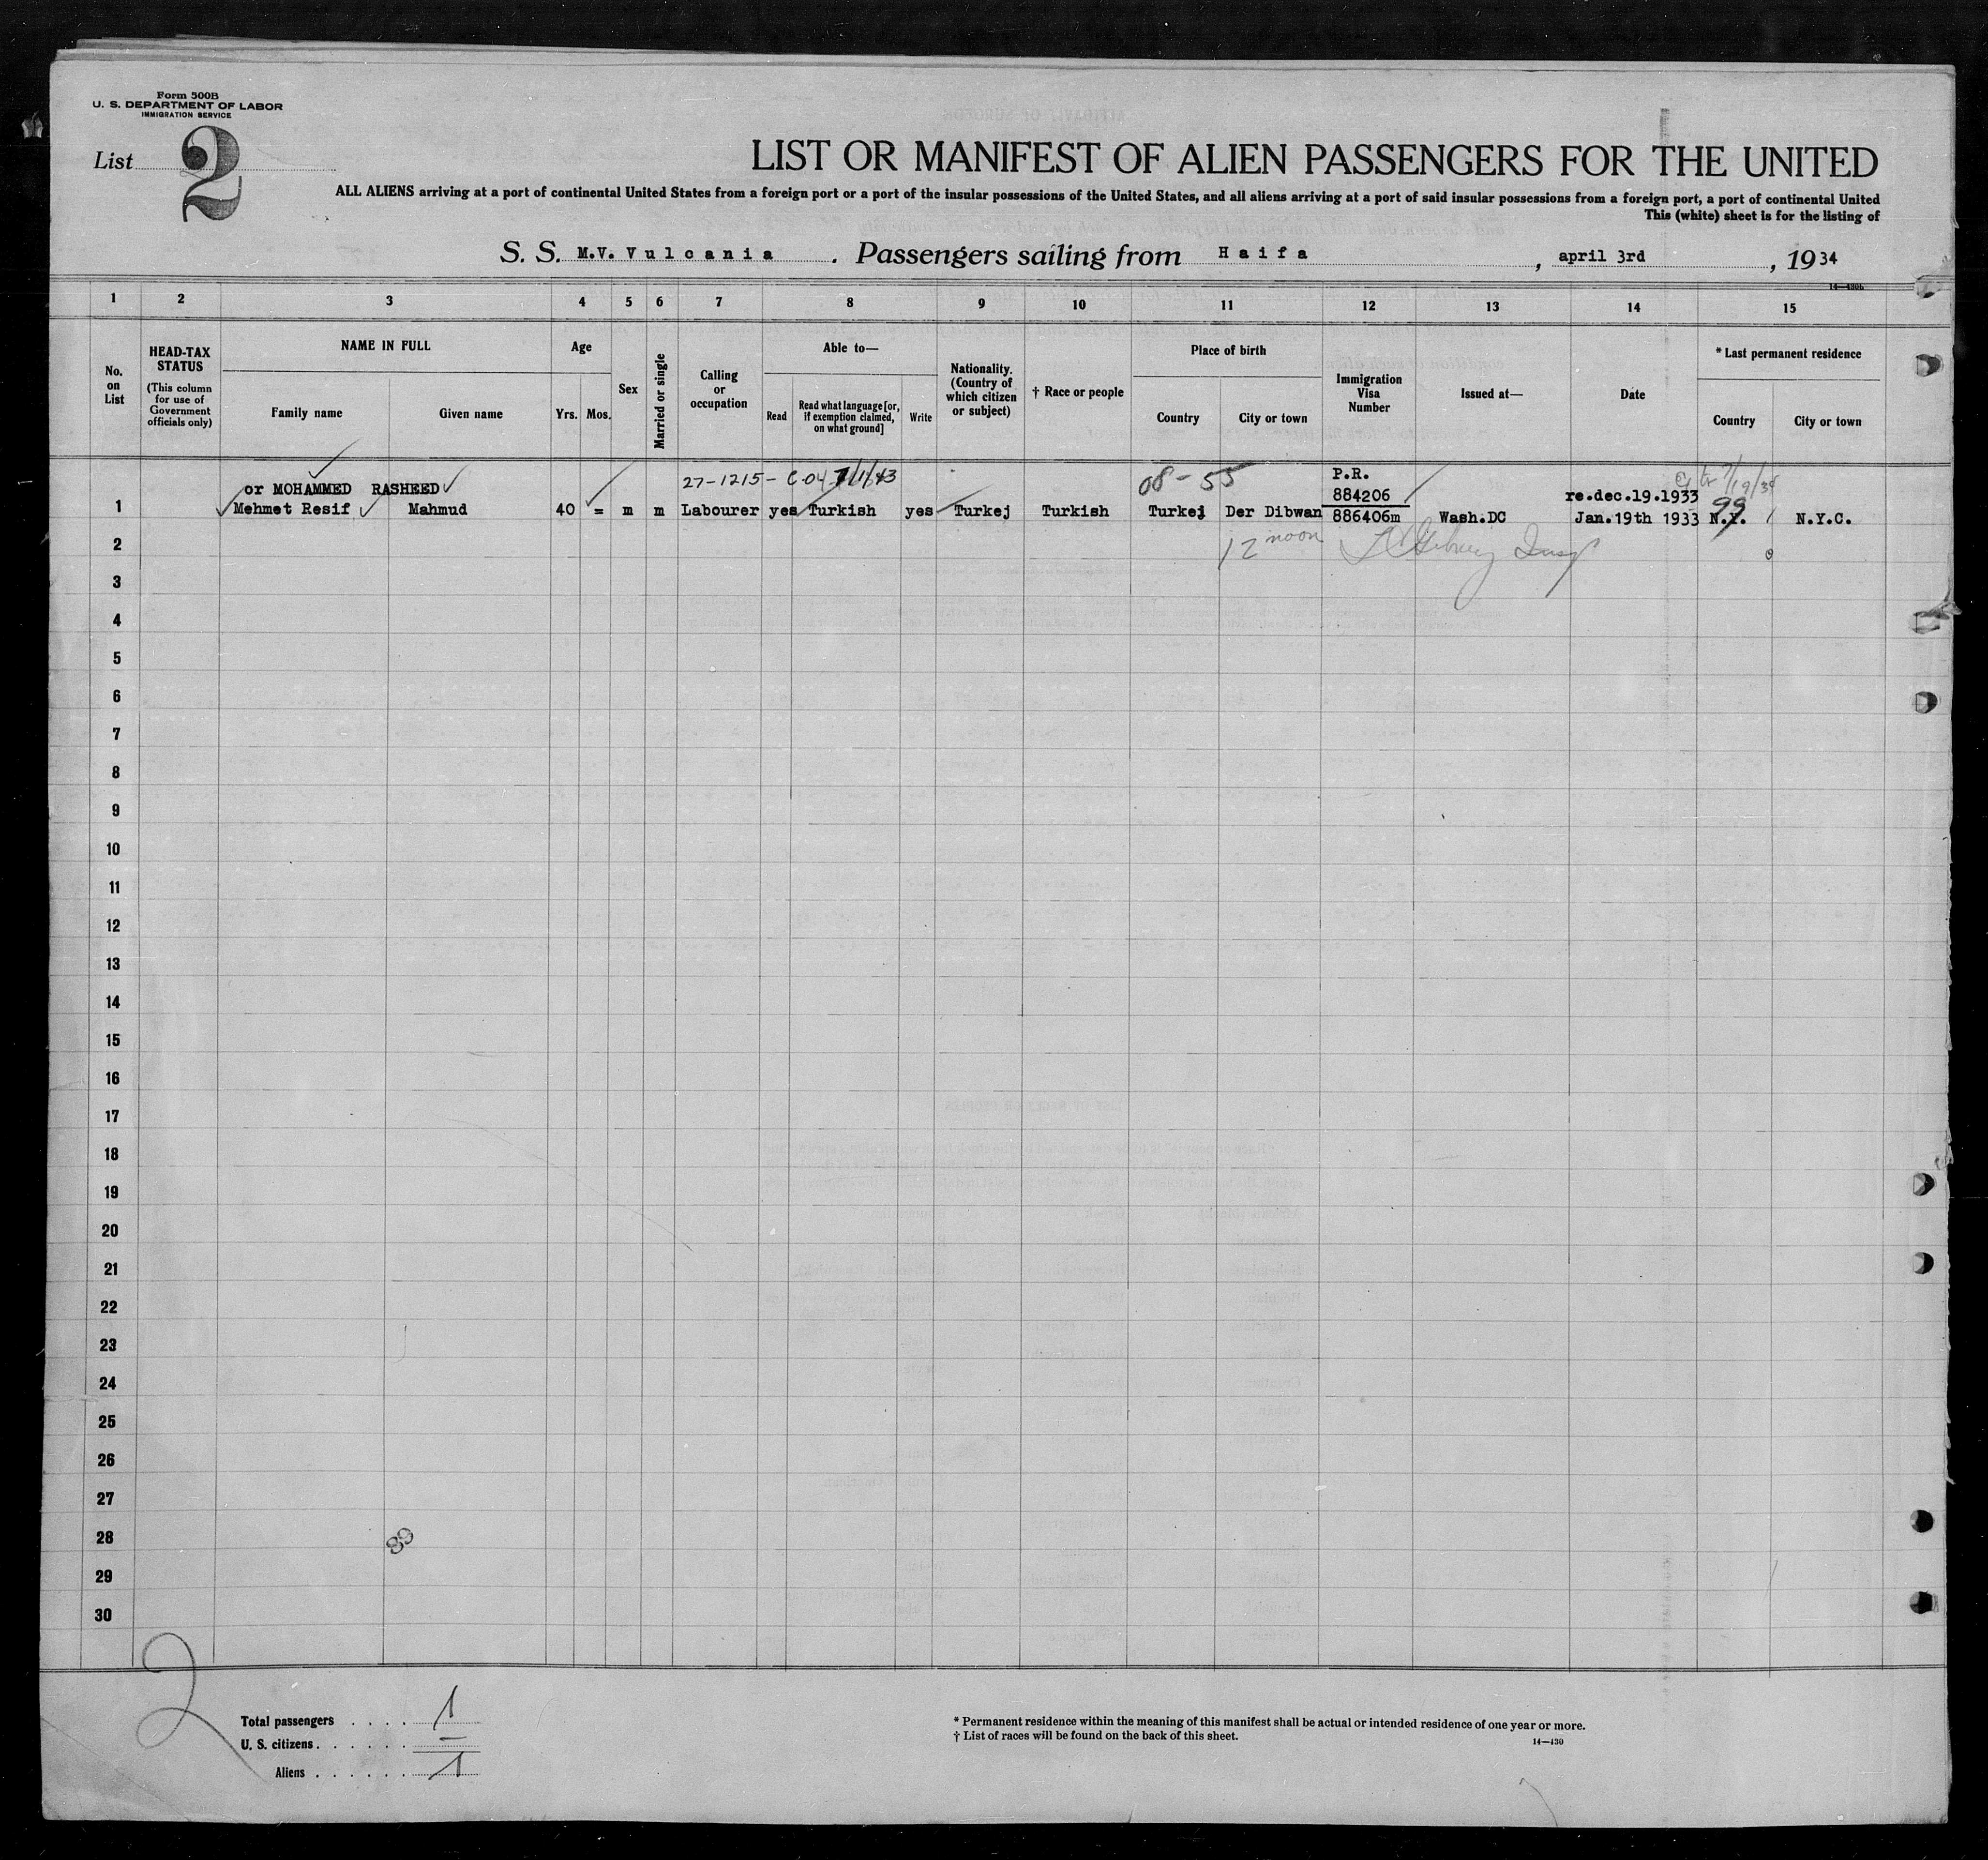 Form 500B
U. S. DEPARTMENT OF LABOR
IMMIGRATION SERVICE
List 2
LIST OR MANIFEST OF ALIEN PASSENGERS FOR THE UNITED
ALL ALIENS arriving at a port of continental United States from a foreign port or a port of the insular possessions of the United States, and all aliens arriving at a port of said insular possessions from a foreign port, a port of continental United
This (white) sheet is for the listing of
S. S. M.V. Vulcania . Passengers sailing from Haifa , april 3rd , 1934
14—430b
1 2 3 4 5 6 7 8 9 10 11 12 13 14 15
No. on List
HEAD-TAX STATUS
(This column for use of Government officials only)
NAME IN FULL
Family name
Given name
Age
Yrs.
Mos.
Sex
Married or single
Calling or occupation
Able to—
Read
Read what language [or, if exemption claimed, on what ground]
Write
Nationality. (Country of which citizen or subject)
† Race or people
Place of birth
Country
City or town
Immigration Visa Number
Issued at—
Date
* Last permanent residence
Country
City or town
27-1215- 08-55 P.R.
or MOHAMMED RASHEED 884206 re.dec.19.1933 99
1 Mehmet Resif Mahmud 40 = m m Labourer yes Turkish yes Turkej Turkish Turkej Der Dibwan 886406m Wash.DC Jan.19th 1933 N.Y. N.Y.C.
2 12 noon
3
4
5
6
7
8
9
10
11
12
13
14
15
16
17
18
19
20
21
22
23
24
25
26
27
28
29
30
2
Total passengers . . . . 1
U. S. citizens . . . . . . –
Aliens . . . . . . 1
* Permanent residence within the meaning of this manifest shall be actual or intended residence of one year or more.
† List of races will be found on the back of this sheet.
14—430